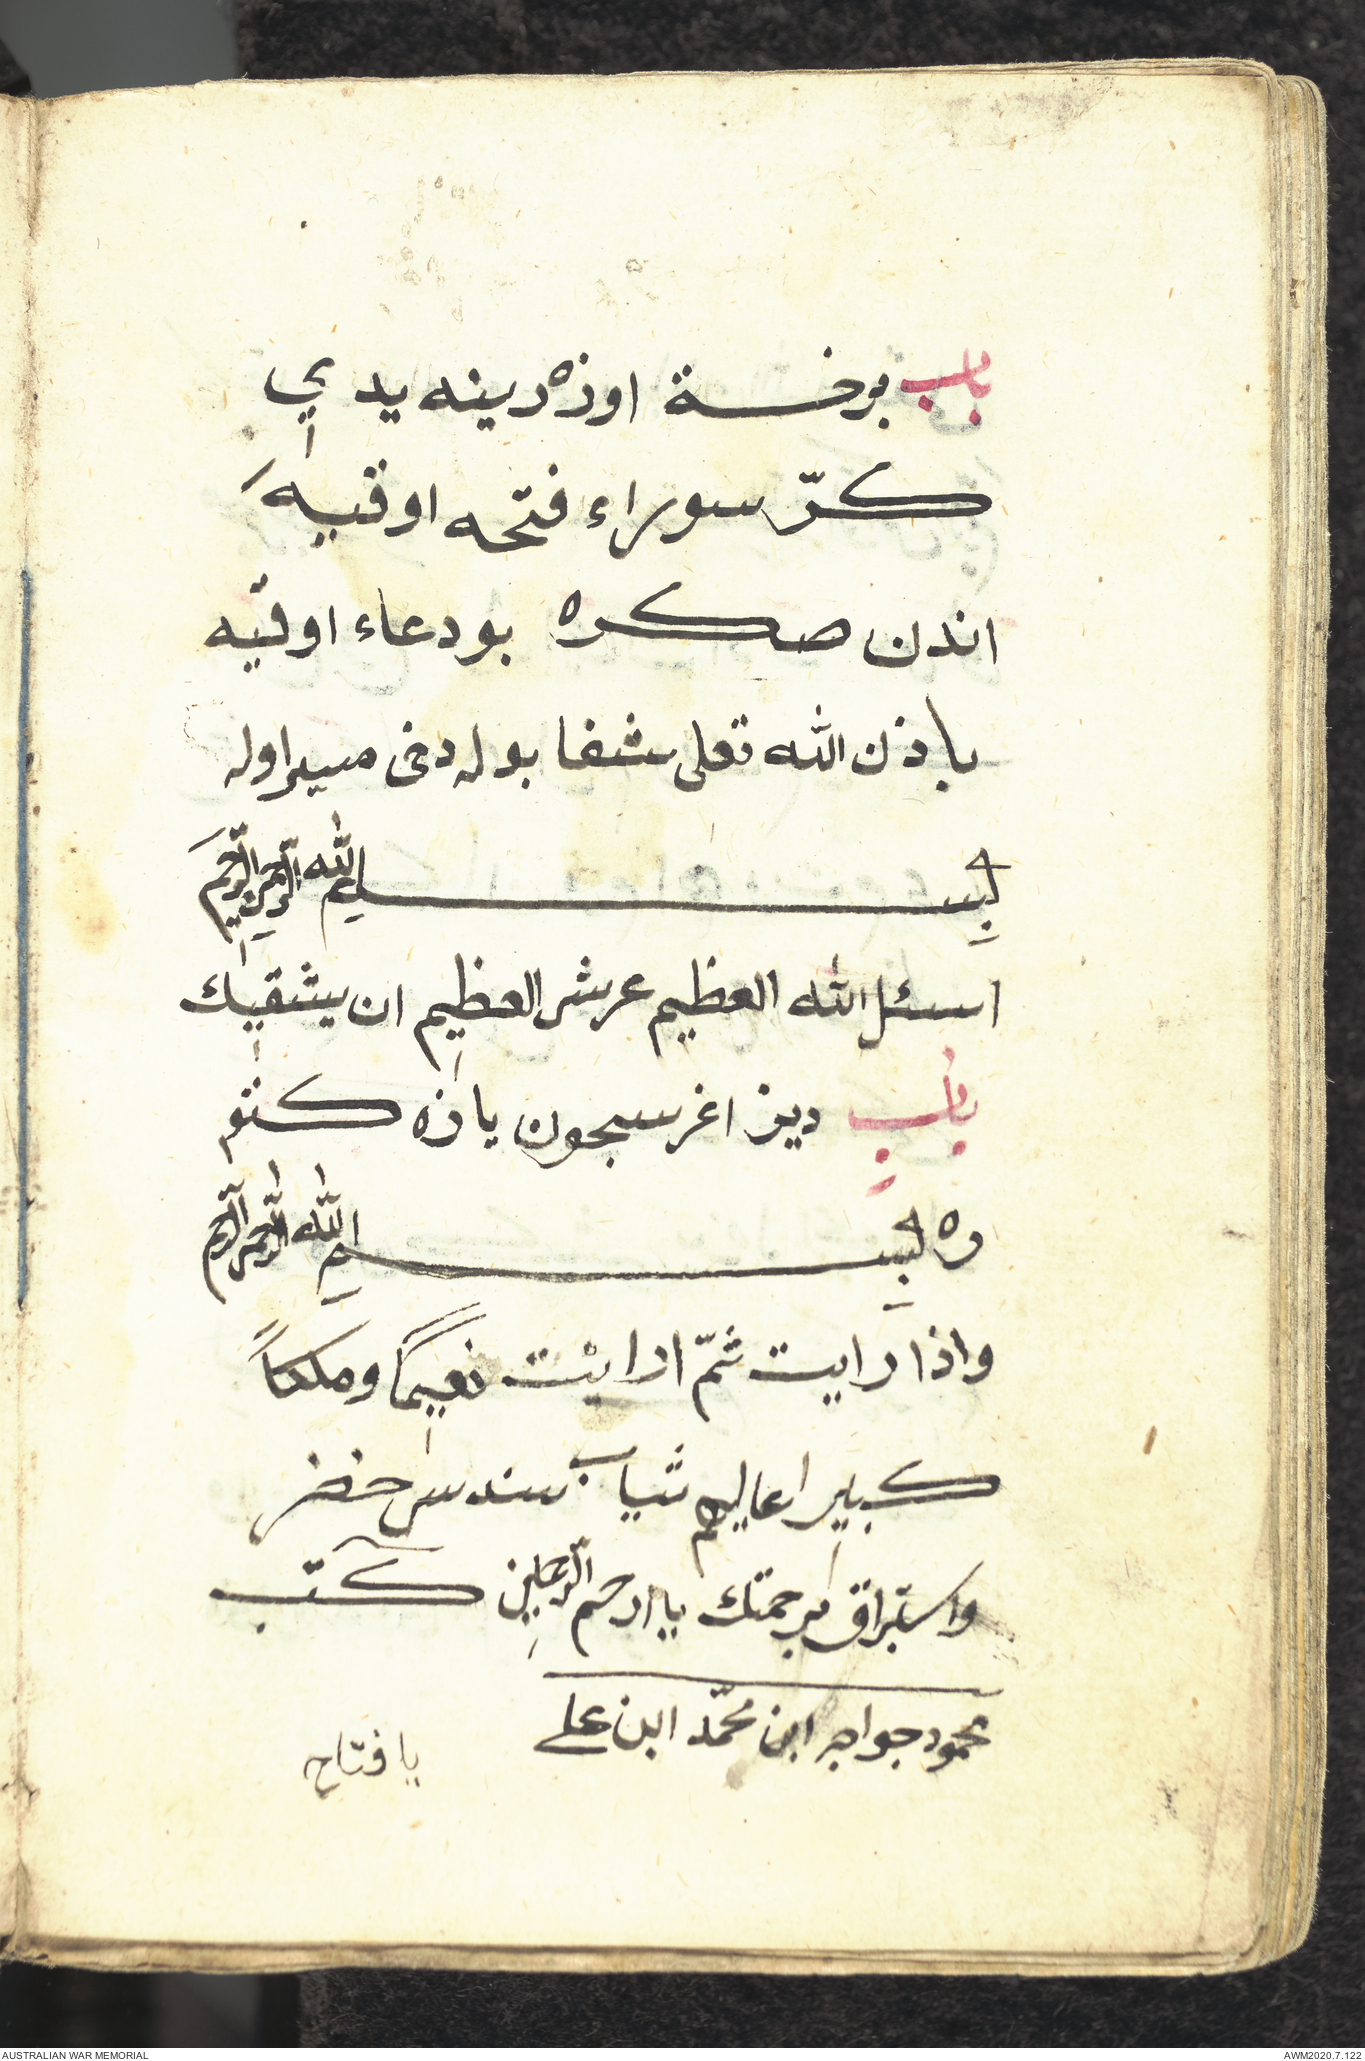 باب برخسة اوزه رينه يدي
كرّ سوراء فتحه اوقيه
اندن صكره بو دعاء اوقيه
باذن الله تعلى شفا بوله دخى ميسر اوله
بسم الله الرحمن الرحيم
اسئل الله العظيم عرش العظيم ان يشقيك
باب ديز اغرسيجون يازه كتو
ره بسم الله الرحمن الرحيم
واذا رايت ثمّ ارايت نعيماً وملكاً
كبيرا عاليهم ثياب سندس خضر
واستبراق برحمتك يا ارحم الرحمين كتب
محمود جواجه ابن محمّد ابن على
يا فتاح
AUSTRALIAN WAR MEMORIAL
AWM2020.7.122